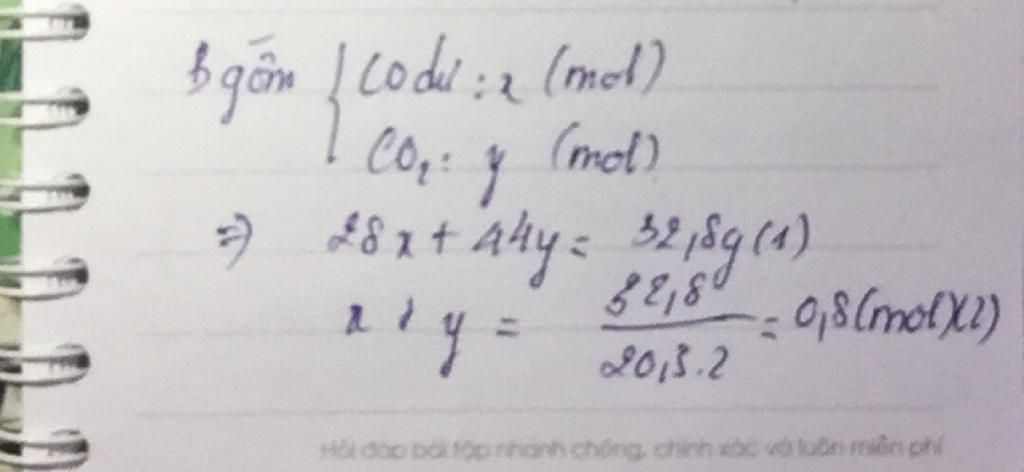 B gồm { CO dư : x (mol)
CO₂ : y (mol)
=) 28x + 44y = 32,8g (1)
x + y = 32,8 / 20,5.2 = 0,8 (mol) (2)
Hỏi đáp bài tập nhanh chóng, chính xác và luôn miễn phí